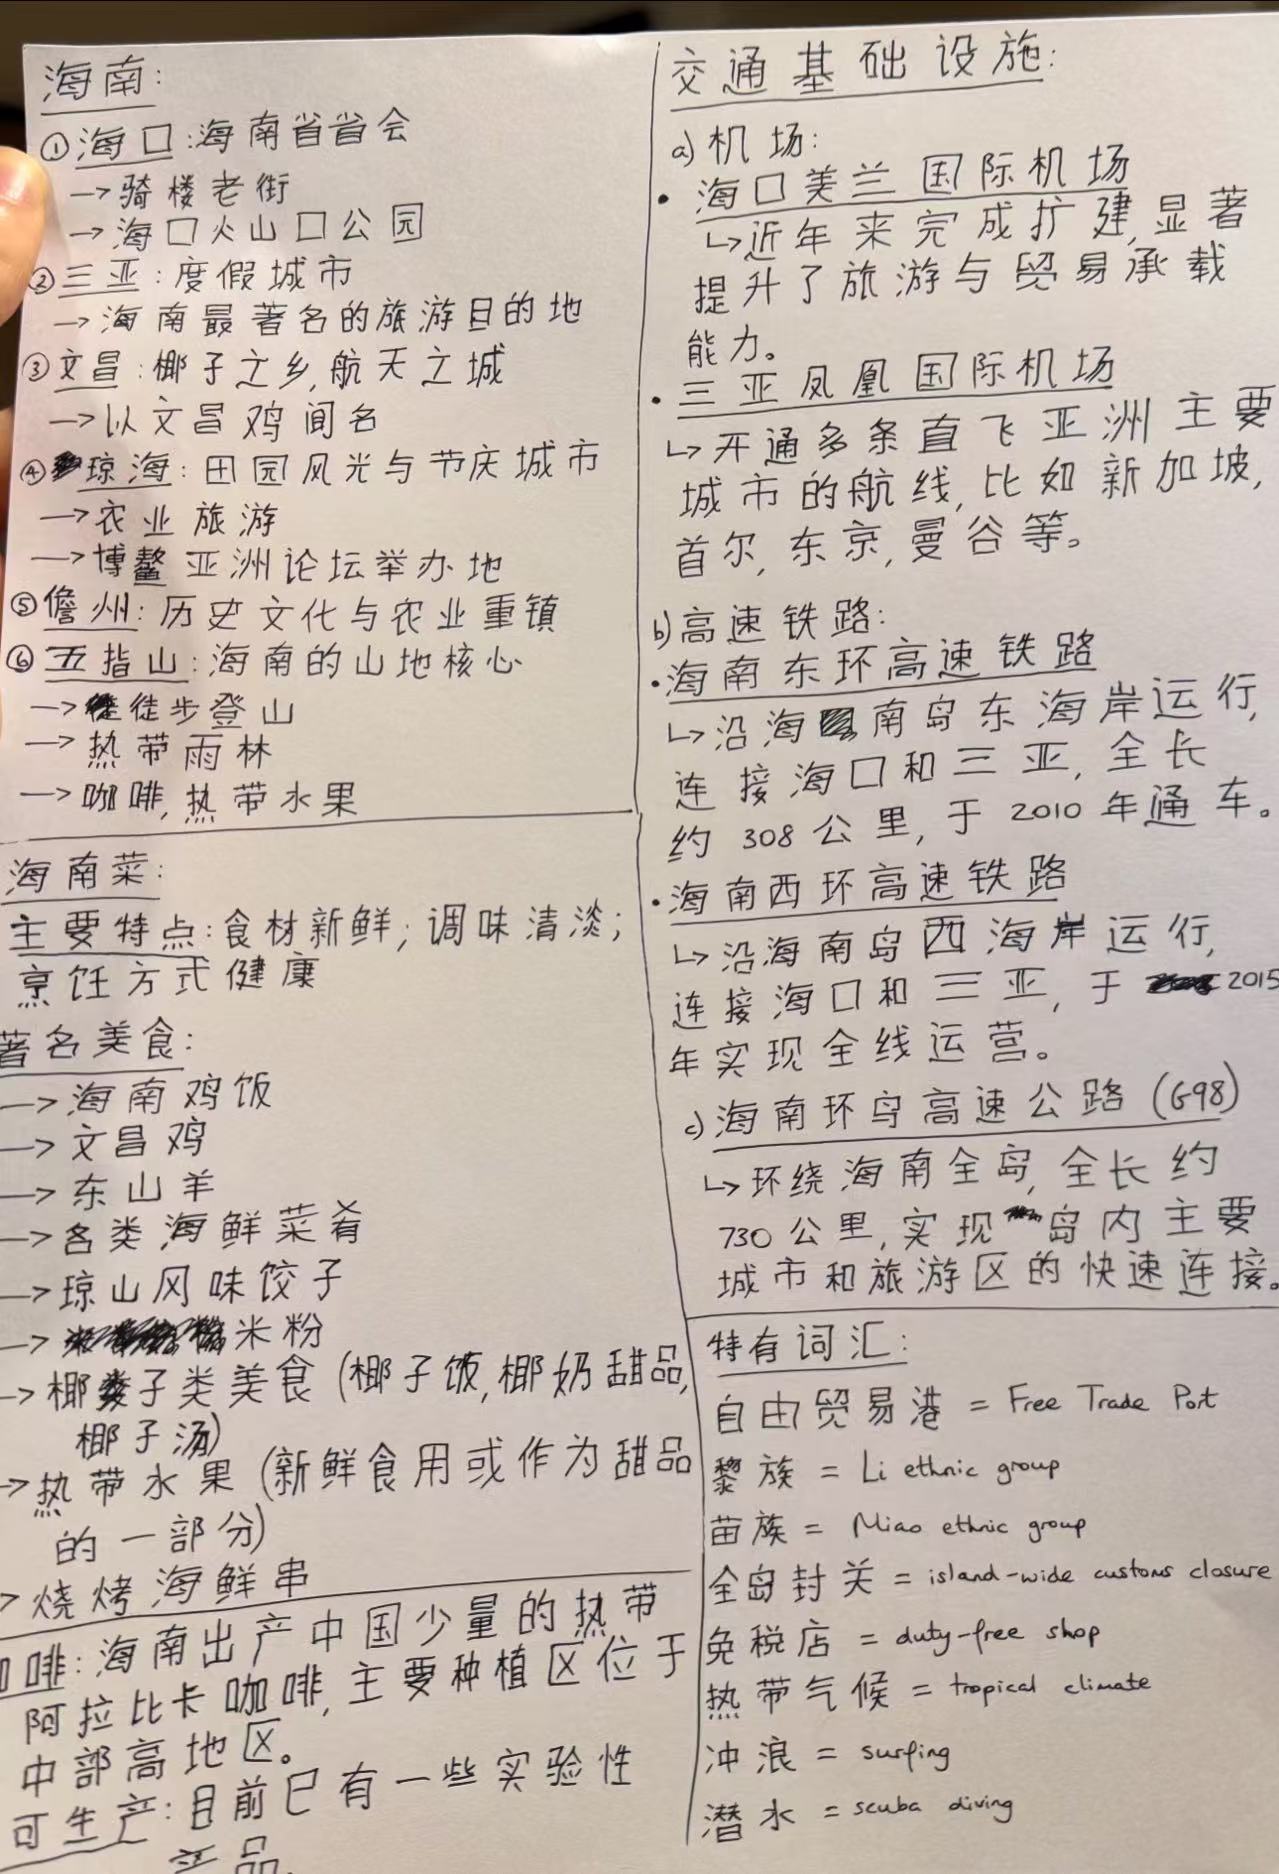 海南:
①海口:海南省省会
→骑楼老街
→海口火山口公园
②三亚:度假城市
→海南最著名的旅游目的地
③文昌:椰子之乡,航天之城
→以文昌鸡闻名
④琼海:田园风光与节庆城市
→农业旅游
→博鳌亚洲论坛举办地
⑤儋州:历史文化与农业重镇
⑥五指山:海南的山地核心
→徒步登山
→热带雨林
→咖啡,热带水果
海南菜:
主要特点:食材新鲜;调味清淡;
烹饪方式健康
著名美食:
→海南鸡饭
→文昌鸡
→东山羊
→各类海鲜菜肴
→琼山风味饺子
→米粉
→椰子类美食(椰子饭,椰奶甜品,
椰子汤)
→热带水果(新鲜食用或作为甜品
的一部分)
→烧烤海鲜串
啡:海南出产中国少量的热带
阿拉比卡咖啡,主要种植区位于
中部高地区。
可生产:目前已有一些实验性
产品
交通基础设施:
a)机场:
·海口美兰国际机场
↳近年来完成扩建,显著
提升了旅游与贸易承载
能力。
·三亚凤凰国际机场
↳开通多条直飞亚洲主要
城市的航线,比如新加坡,
首尔,东京,曼谷等。
b)高速铁路:
·海南东环高速铁路
↳沿海南岛东海岸运行,
连接海口和三亚,全长
约308公里,于2010年通车。
·海南西环高速铁路
↳沿海南岛西海岸运行,
连接海口和三亚,于2015
年实现全线运营。
c)海南环岛高速公路(G98)
↳环绕海南全岛,全长约
730公里,实现岛内主要
城市和旅游区的快速连接。
特有词汇:
自由贸易港=Free Trade Port
黎族=Li ethnic group
苗族=Miao ethnic group
全岛封关=island-wide customs closure
免税店=duty-free shop
热带气候=tropical climate
冲浪=surfing
潜水=scuba diving